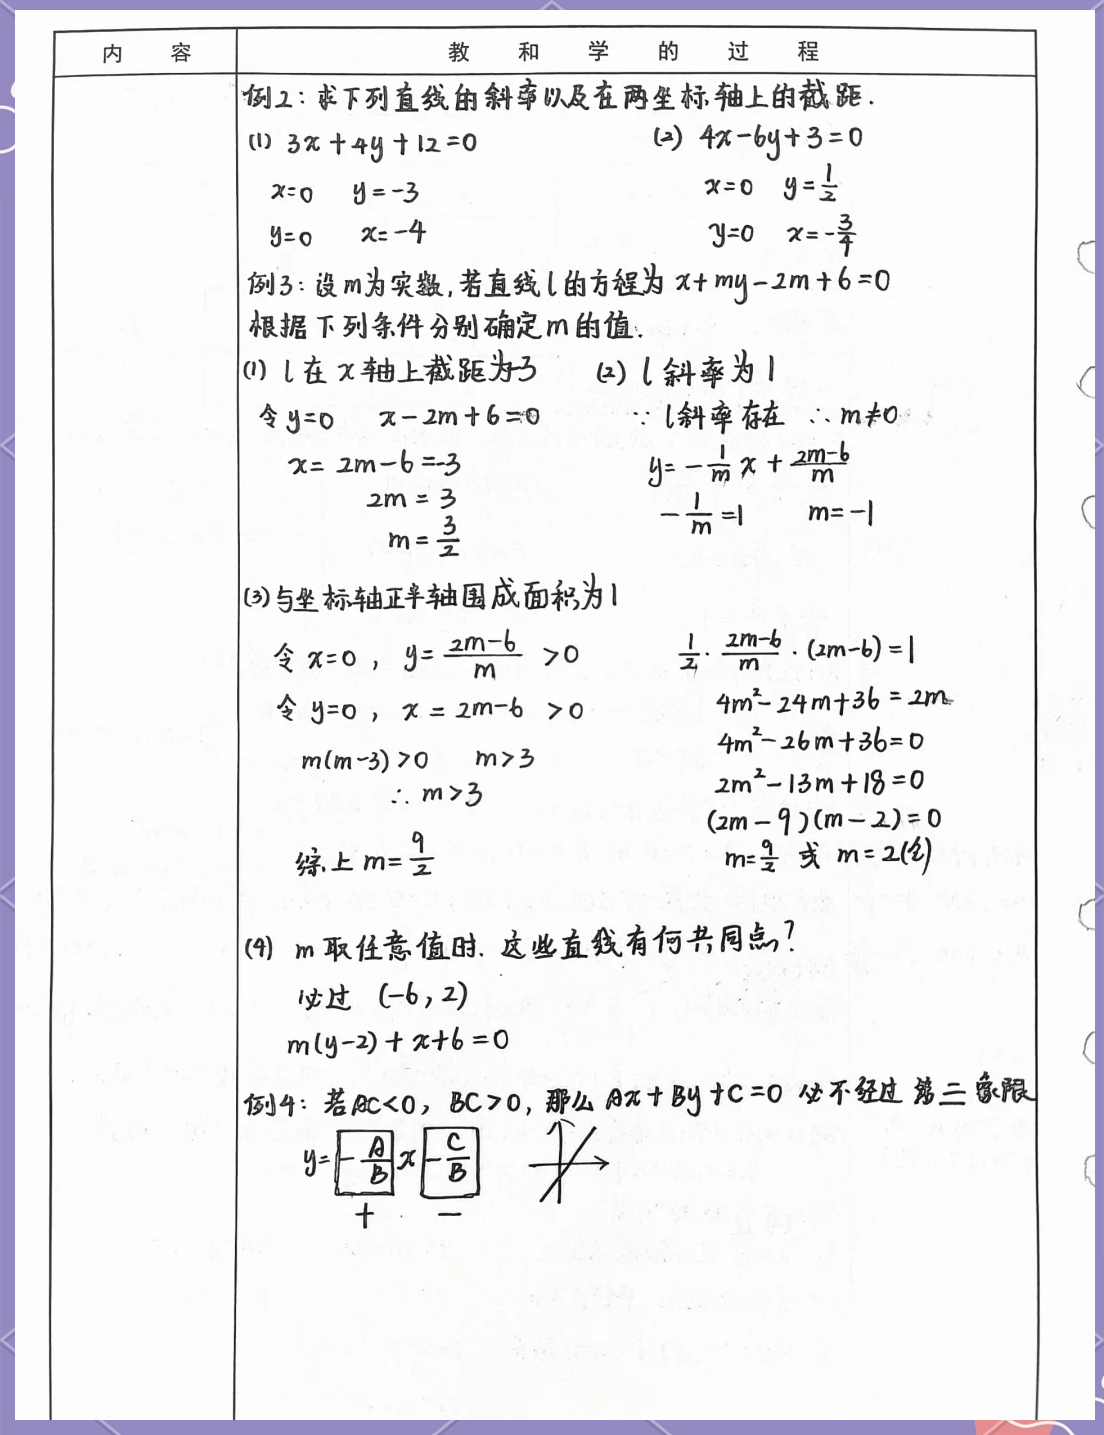 内 容 教 和 学 的 过 程
例2：求下列直线的斜率以及在两坐标轴上的截距.
(1) 3x+4y+12=0 (2) 4x-6y+3=0
x=0 y=-3 x=0 y=1/2
y=0 x=-4 y=0 x=-3/4
例3：设m为实数,若直线l的方程为 x+my-2m+6=0
根据下列条件分别确定m的值.
(1) l在x轴上截距为-3 (2) l斜率为1
令y=0 x-2m+6=0 ∵ l斜率存在 ∴ m≠0
x= 2m-6=-3 y=-1/m x+(2m-6)/m
2m=3 -1/m=1 m=-1
m=3/2
(3)与坐标轴正半轴围成面积为1
令x=0, y=(2m-6)/m >0 1/2·(2m-6)/m·(2m-6)=1
令y=0, x=2m-6 >0 4m²-24m+36=2m
m(m-3)>0 m>3 4m²-26m+36=0
∴ m>3 2m²-13m+18=0
(2m-9)(m-2)=0
综上 m=9/2 m=9/2 或 m=2(舍)
(4) m取任意值时.这些直线有何共同点?
必过 (-6,2)
m(y-2)+x+6=0
例4：若AC<0, BC>0,那么 Ax+By+C=0 必不经过第二象限
y= -A/B x -C/B
+ -